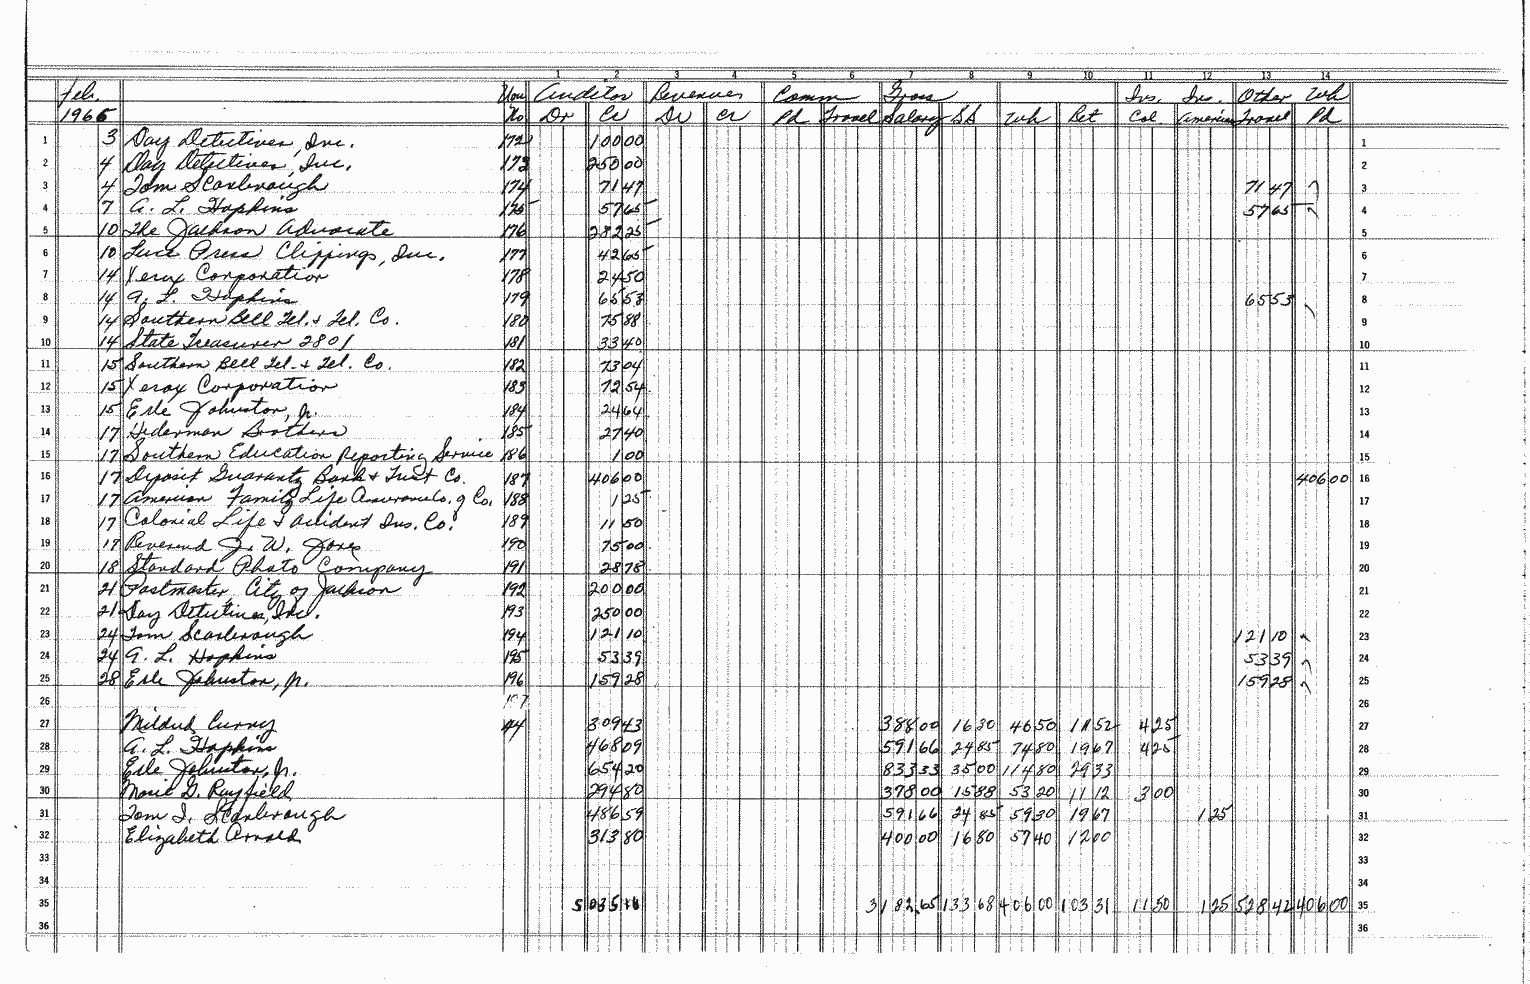 1 2 3 4 5 6 7 8 9 10 11 12 13 14
Feb. Vou Auditor Revenues Comm Gross Ins. Ins. Other Wh
1966 No Dr Cr Dr Cr Pd Travel Salary SS Wh Ret Col American Travel Pd
1 3 Day Detectives, Inc. 172 100 00 1
2 4 Day Detectives, Inc. 173 250 00 2
3 4 Tom Scarbrough 174 71 47 71 47 3
4 7 A. L. Hopkins 175 57 65 57 65 4
5 10 The Jackson Advocate 176 282 25 5
6 10 Luce Press Clippings, Inc. 177 42 65 6
7 14 Xerox Corporation 178 24 50 7
8 14 A. L. Hopkins 179 65 53 65 53 8
9 14 Southern Bell Tel. & Tel. Co. 180 75 88 9
10 14 State Treasurer 2801 181 33 40 10
11 15 Southern Bell Tel. & Tel. Co. 182 73 04 11
12 15 Xerox Corporation 183 72 54 12
13 15 Erle Johnston, Jr. 184 24 64 13
14 17 Hederman Brothers 185 27 40 14
15 17 Southern Education Reporting Service 186 1 00 15
16 17 Deposit Guaranty Bank & Trust Co. 187 406 00 406 00 16
17 17 American Family Life Assurance Co. of Co. 188 1 25 17
18 17 Colonial Life & Accident Ins. Co. 189 11 50 18
19 17 Reverend J. W. Jones 190 75 00 19
20 18 Standard Photo Company 191 28 78 20
21 21 Postmaster, City of Jackson 192 200 00 21
22 21 Day Detectives, Inc. 193 250 00 22
23 24 Tom Scarbrough 194 121 10 121 10 23
24 24 A. L. Hopkins 195 53 39 53 39 24
25 28 Erle Johnston, Jr. 196 159 28 159 28 25
26 197 26
27 Mildred Curry 44 309 43 388 00 16 30 46 50 11 52 4 25 27
28 A. L. Hopkins 468 09 591 66 24 85 74 80 19 67 4 25 28
29 Erle Johnston, Jr. 654 20 833 33 35 00 114 80 29 33 29
30 Marie G. Rayfield 294 80 378 00 15 88 53 20 11 12 3 00 30
31 Tom J. Scarbrough 486 59 591 66 24 85 59 30 19 67 1 25 31
32 Elizabeth Arnold 313 80 400 00 16 80 57 40 12 00 32
33 33
34 34
35 3 182.65 133 68 406 00 103 31 11 50 1 25 528 42 406 00 35
36 36